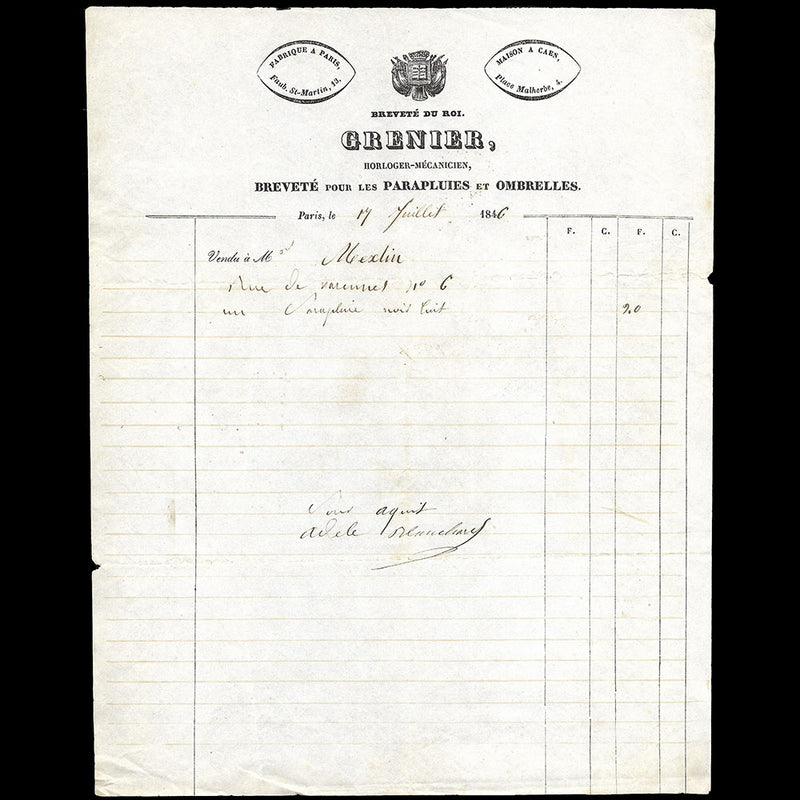 FABRIQUE A PARIS,
Faub. St-Martin, 13.
MAISON A CAEN,
Place Malherbe, 4.
BREVETÉ DU ROI.
GRENIER,
HORLOGER-MÉCANICIEN,
BREVETÉ POUR LES PARAPLUIES ET OMBRELLES.
Paris, le 17 Juillet 1846
F. C. F. C.
Vendu à M
Rue de varennes no 6
un Parapluie noir 20
Pour aquit
adele Blanchard